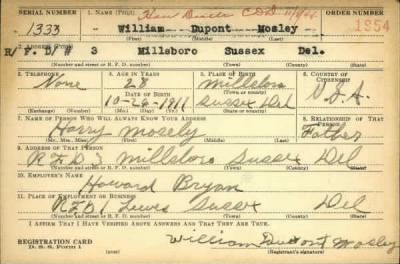 SERIAL NUMBER 1. NAME (Print) ORDER NUMBER
1333 William Dupont Mosley 1854
(First) (Middle) (Last)
2. ADDRESS (Print)
R/F.D/# 3 Millsboro Sussex Del.
(Number and street or R. F. D. number) (Town) (County) (State)
3. TELEPHONE 4. AGE IN YEARS 5. PLACE OF BIRTH 6. COUNTRY OF CITIZENSHIP
None 28 Millsboro
DATE OF BIRTH (Town or county) U.S.A.
10-26-1911 Sussex Del
(Exchange) (Number) (Mo.) (Day) (Yr.) (State or country)
7. NAME OF PERSON WHO WILL ALWAYS KNOW YOUR ADDRESS 8. RELATIONSHIP OF THAT PERSON
Harry Mosely Father
(Mr., Mrs., Miss) (First) (Middle) (Last)
9. ADDRESS OF THAT PERSON
R.F.D 3 Millsboro Sussex Del
(Number and street or R. F. D. number) (Town) (County) (State)
10. EMPLOYER'S NAME
Howard Bryan
11. PLACE OF EMPLOYMENT OR BUSINESS
R.F.D 1 Lewes Sussex Del
(Number and street or R. F. D. number) (Town) (County) (State)
I AFFIRM THAT I HAVE VERIFIED ABOVE ANSWERS AND THAT THEY ARE TRUE.
REGISTRATION CARD William Dupont Mosley
D. S. S. Form 1 (Registrant's signature)